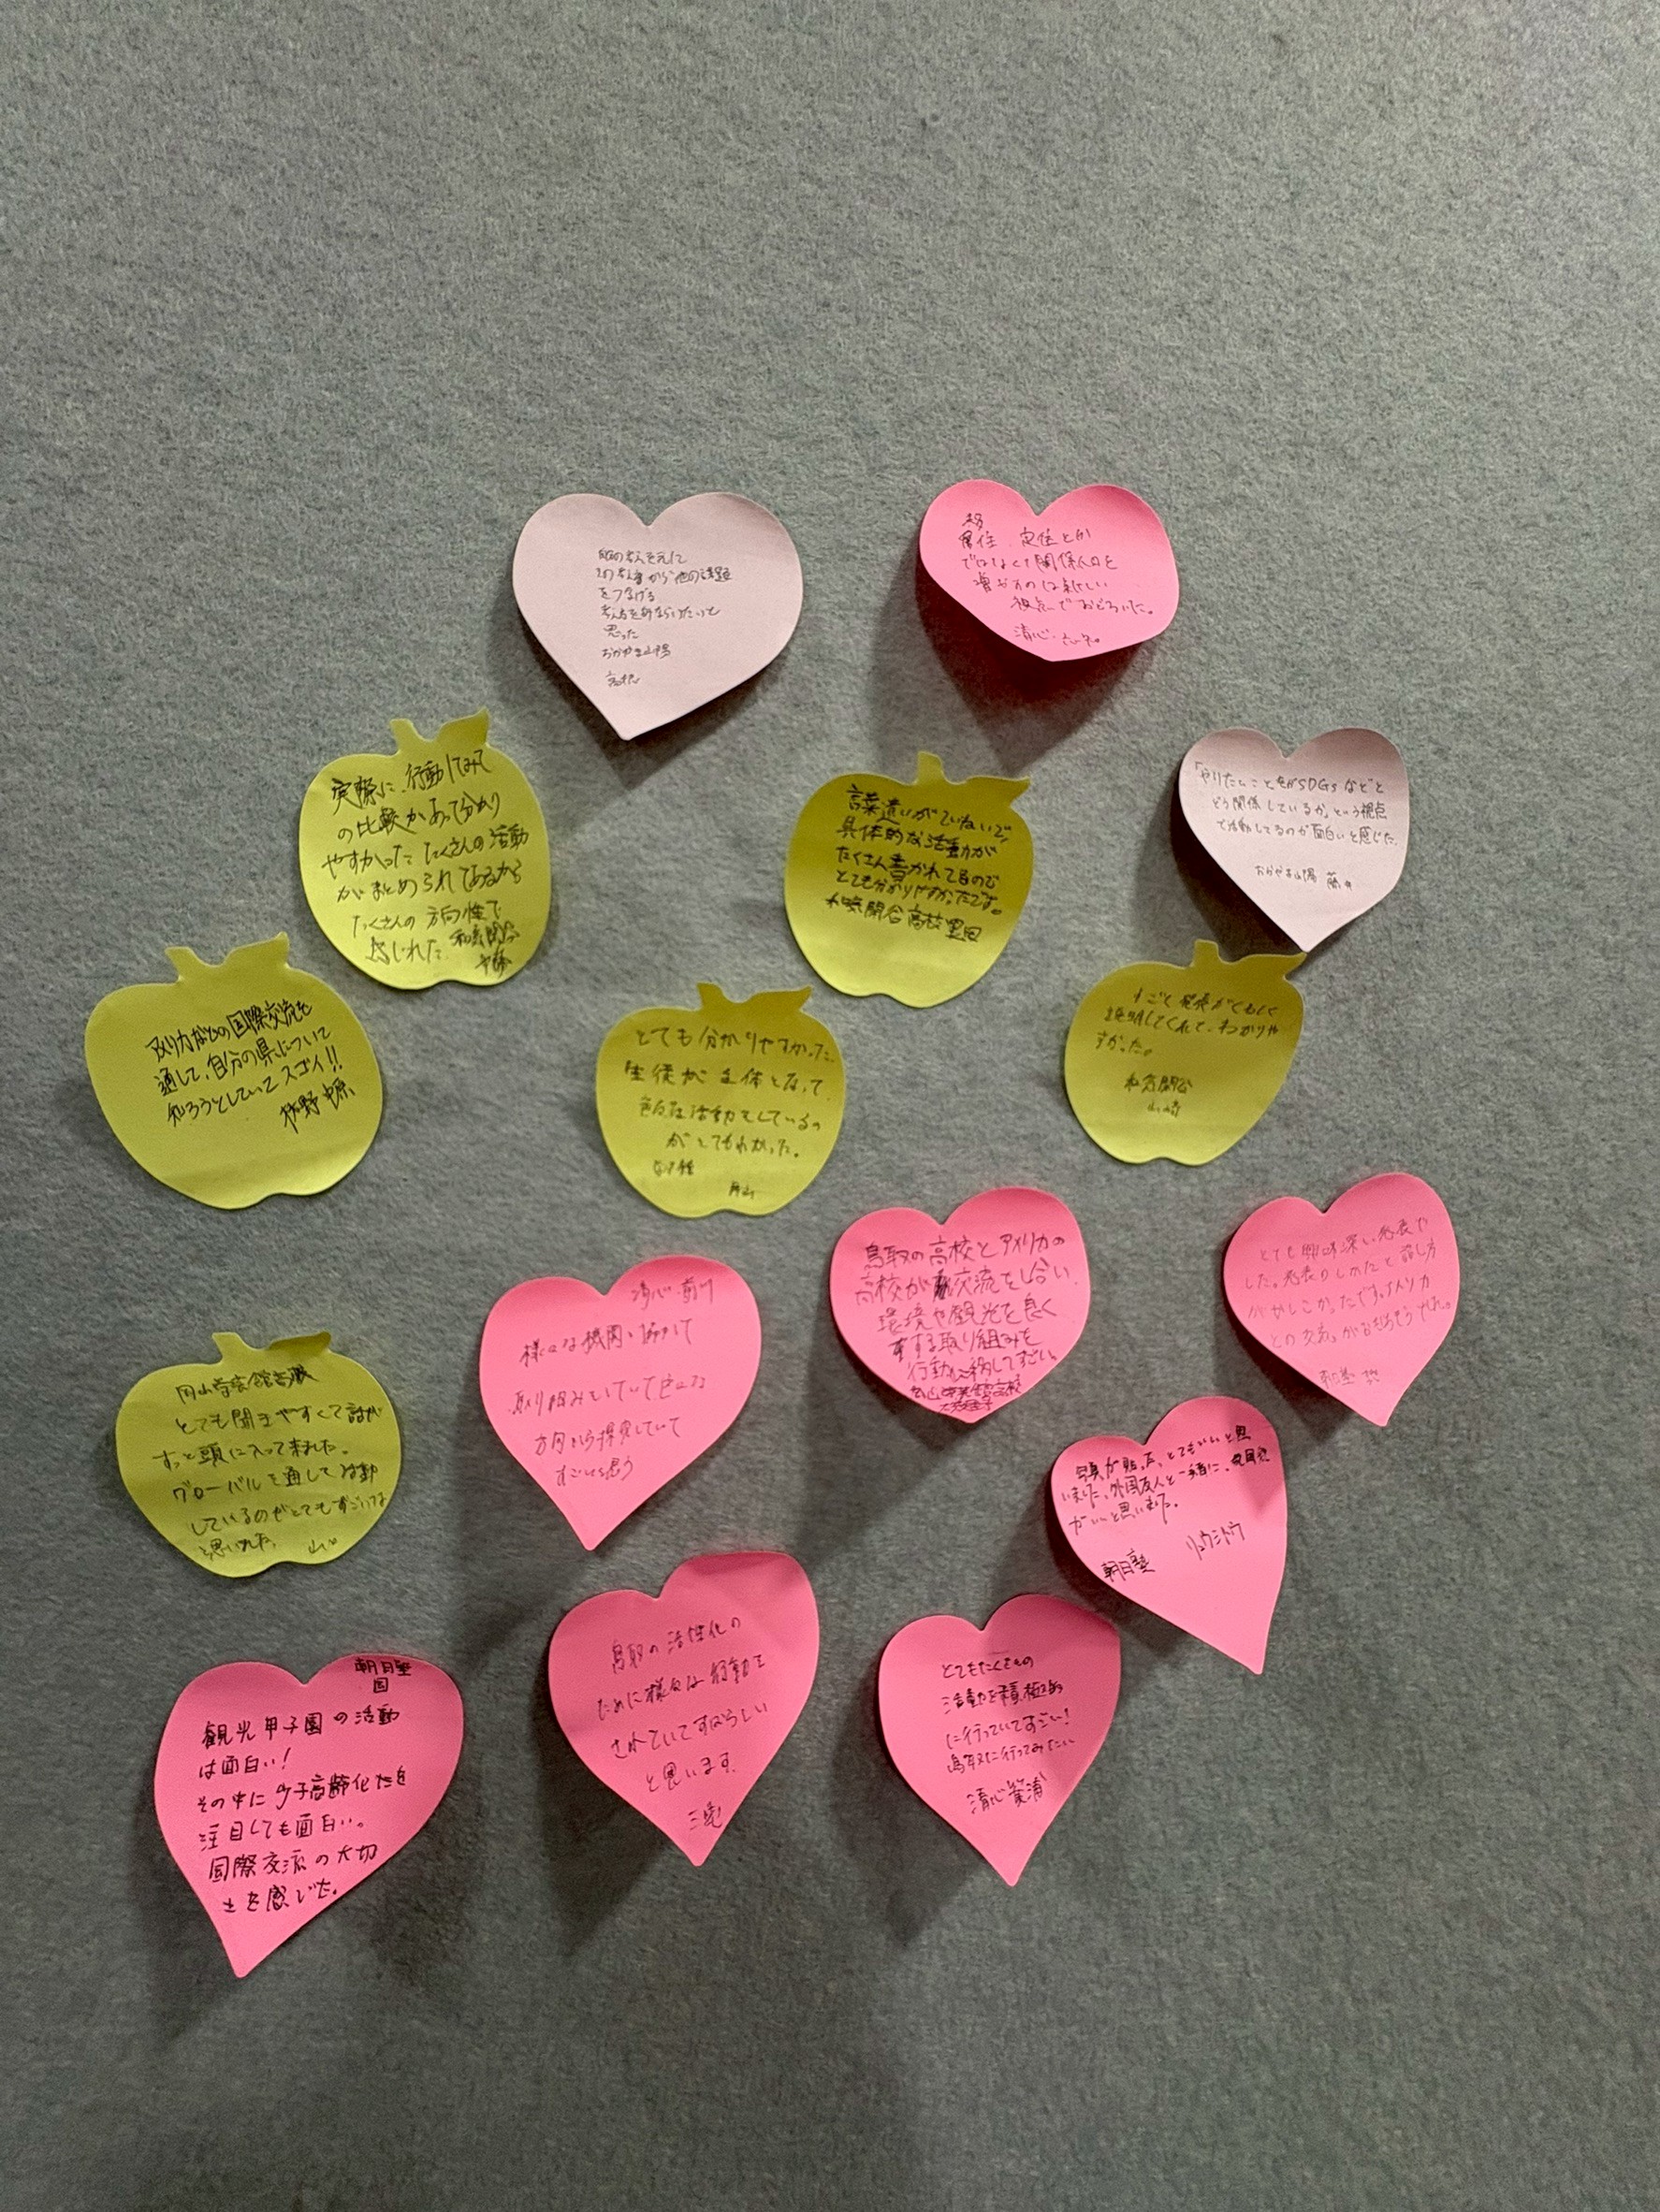 思った
おかやま山陽
移住、定住とか
ではなくて関係人口を
増やすのは新しい
視点でおどろいた。
清心
実際に、行動してみて
の比較があって分かり
やすかった たくさんの活動
がまとめられてあるから
たくさんの方向性で
感じれた。
言葉遣いがていねいで、
具体的な活動が
たくさん書かれてるので
とても分かりやすかったです。
和気閑谷高校 里田
「やりたいこと」がSDGsなどと
どう関係しているか、という視点
で活動してるのが面白いと感じた。
おかやま山陽 藤井
アメリカなどの国際交流を
通して、自分の県について
知ろうとしていてスゴイ!!
とても分かりやすかった。
生徒が主体となって
色々な活動をしているの
がとてもわかった。
すごく発表がくわしく
説明してくれて、わかりや
すかった。
和気閑谷
山崎
鳥取の高校とアメリカの
高校が交流をし合い、
環境や観光を良く
する取り組みを
行動に移してすごい。
とても興味深い発表で
した。発表のしかたと話し方
がかしこかったです。アメリカ
清心・前川
様々な機関と協力して
取り組みをしていて色々な
方向から探究していて
すごいと思う
岡山学芸館
とても聞きやすくて話が
すっと頭に入って来ました。
グローバルを通して活動
しているのがとてもすごいな
と思いました。
写真が貼った、とてもいいと思
いました、外国友人と一緒に、
がいいと思いました。
リュウシトウ
朝日塾
鳥取の活性化の
ために様々な行動を
されていてすばらしい
と思います。
とてもたくさんの
活動を積極的
に行っていてすごい!
鳥取に行ってみたい
清心 箕浦
朝日塾
国
観光甲子園の活動
は面白い!
その中に少子高齢化だを
注目しても面白い。
国際交流の大切
さを感じた。